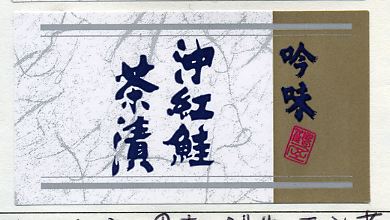 吟味
沖紅鮭
茶漬